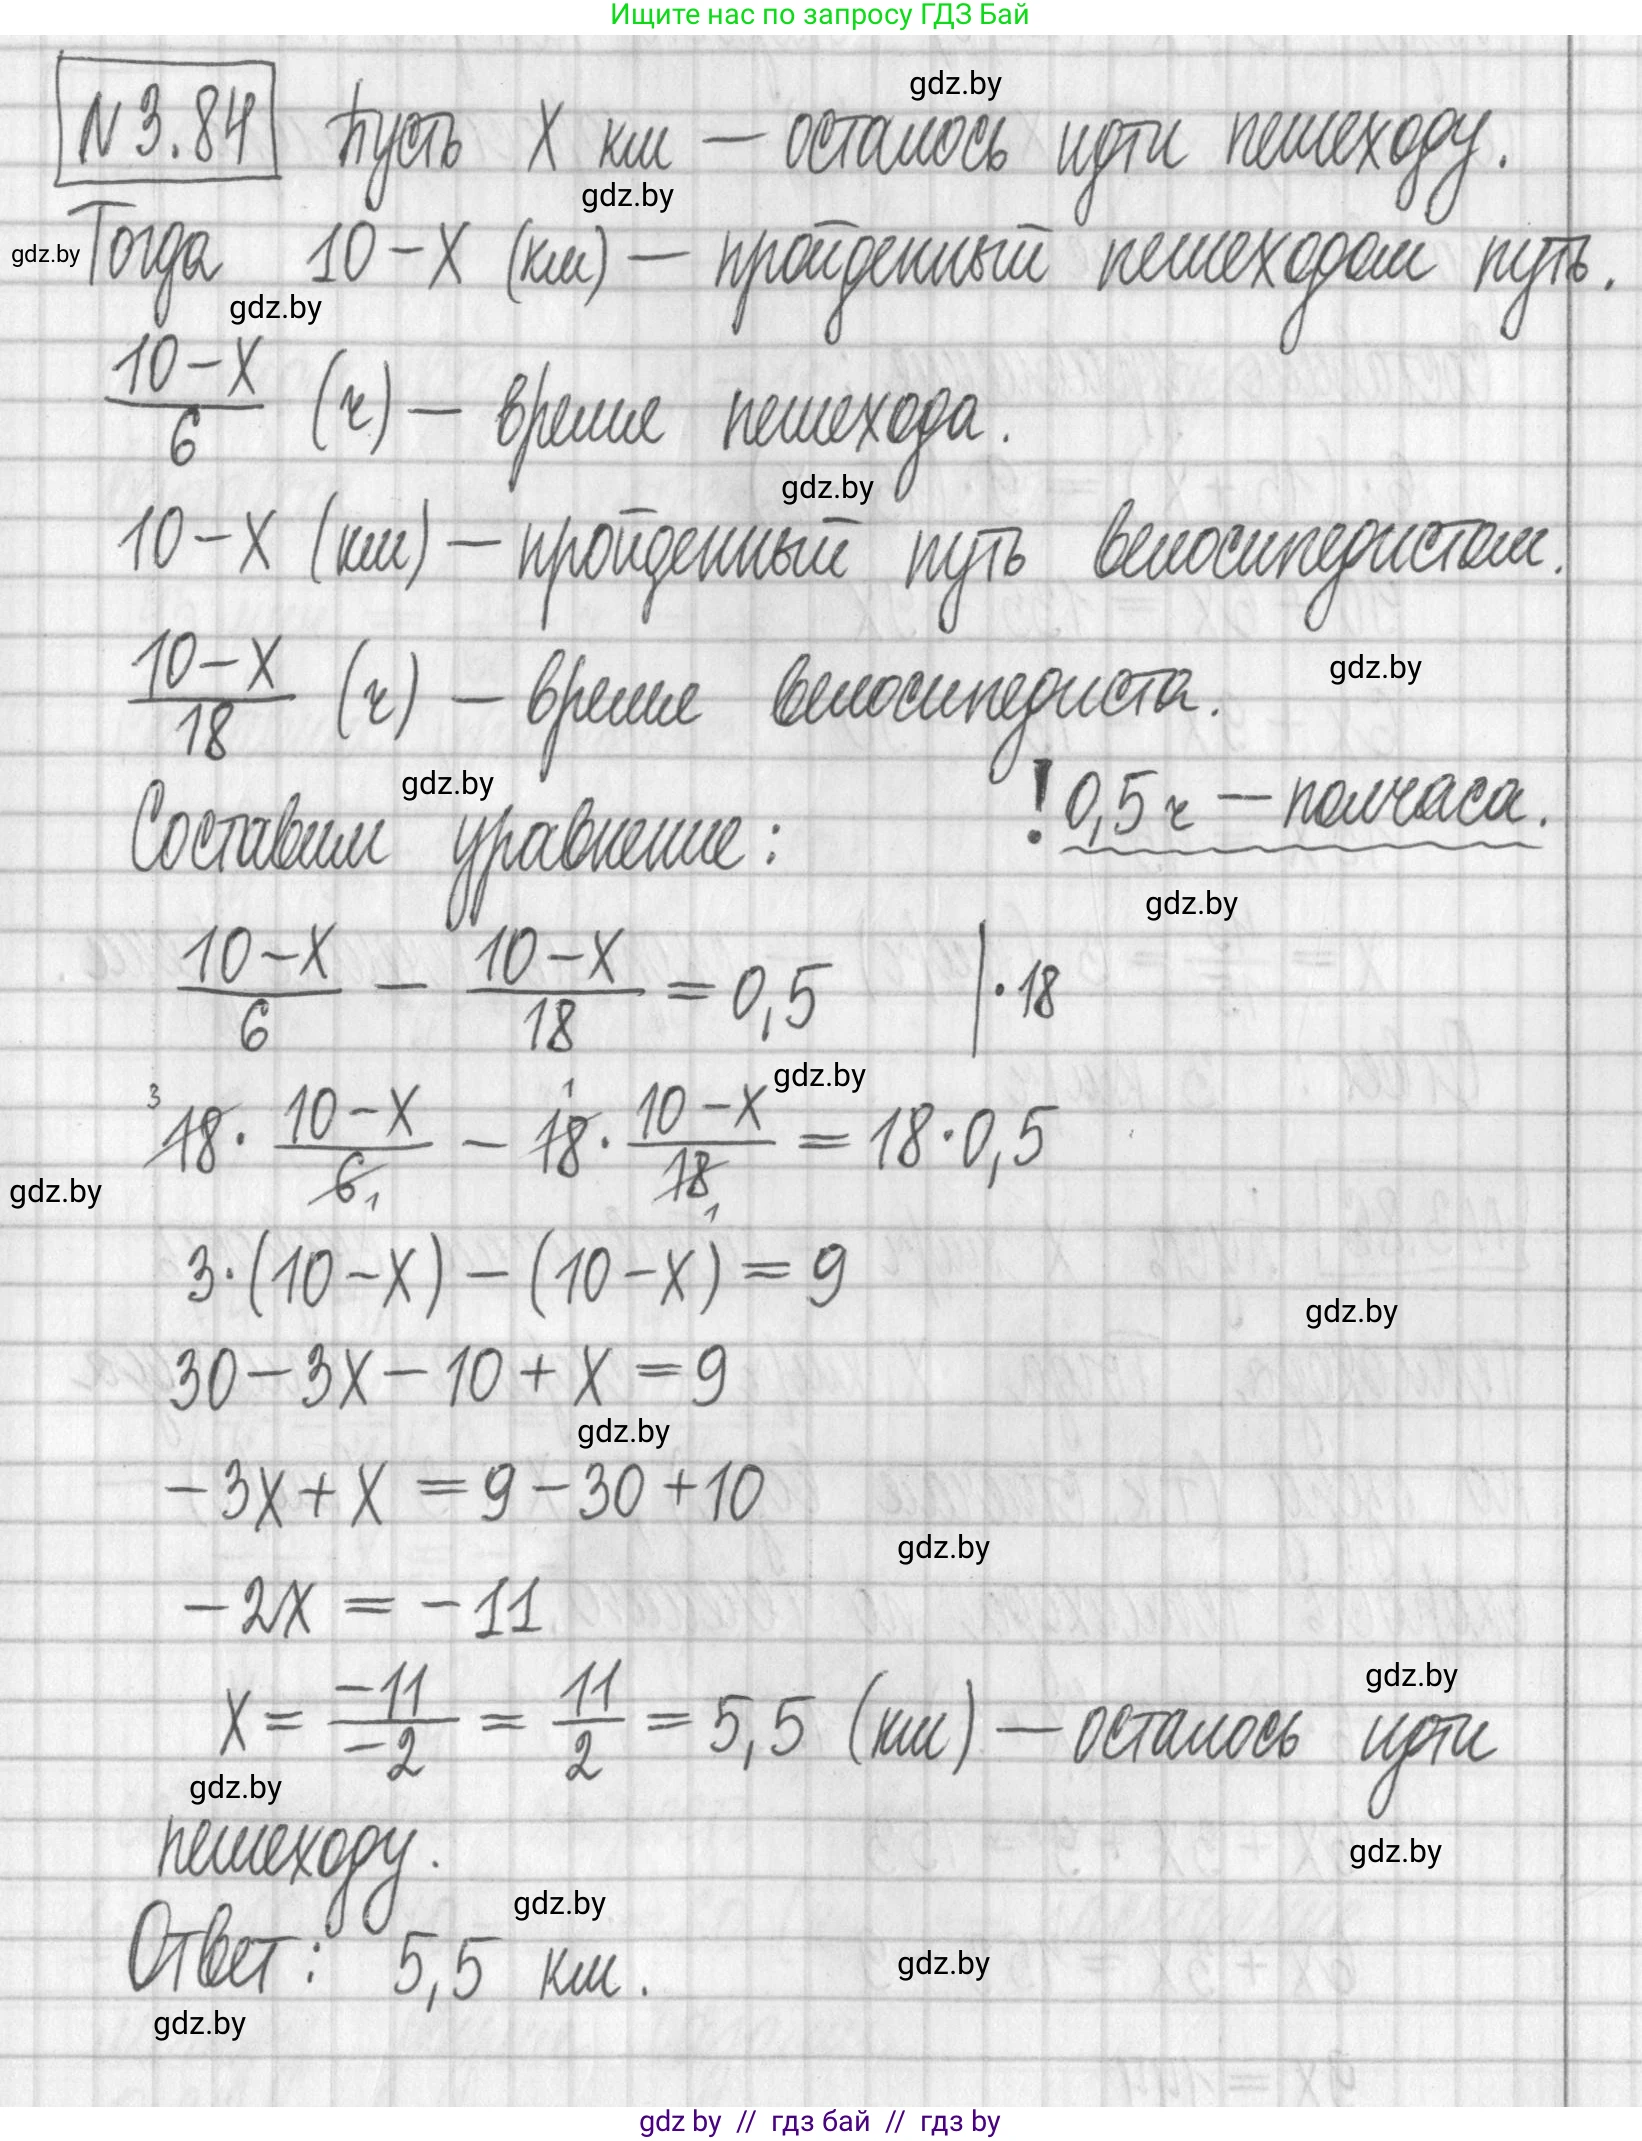 Ищите нас по запросу ГДЗ Бай
gdz.by
N 3.84 Пусть x км — осталось идти пешеходу.
gdz.by
gdz.by Тогда 10-x (км) — пройденный пешеходом путь.
gdz.by
10-x/6 (ч) — время пешехода.
gdz.by
10-x (км) — пройденный путь велосипедистом.
10-x/18 (ч) — время велосипедиста.
gdz.by
gdz.by
Составим уравнение: ! 0,5 ч — полчаса.
gdz.by
10-x/6 - 10-x/18 = 0,5 | · 18
gdz.by
3 18 · 10-x/6 1 - 18 1 · 10-x/18 1 = 18 · 0,5
gdz.by
3·(10-x) - (10-x) = 9
gdz.by
30-3x-10+x=9
gdz.by
-3x+x=9-30+10
gdz.by
-2x=-11
gdz.by
x = -11/-2 = 11/2 = 5,5 (км) — осталось идти
gdz.by
пешеходу.
gdz.by
gdz.by
Ответ: 5,5 км.
gdz.by
gdz.by
gdz by // гдз бай // гдз by